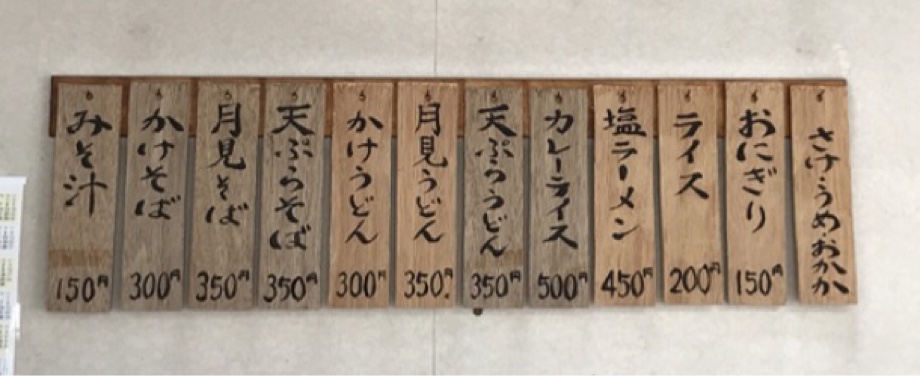 さけうめおかか
おにぎり 150円
ライス 200円
塩ラーメン 450円
カレーライス 500円
天ぷらうどん 350円
月見うどん 350円
かけうどん 300円
天ぷらそば 350円
月見そば 350円
かけそば 300円
みそ汁 150円